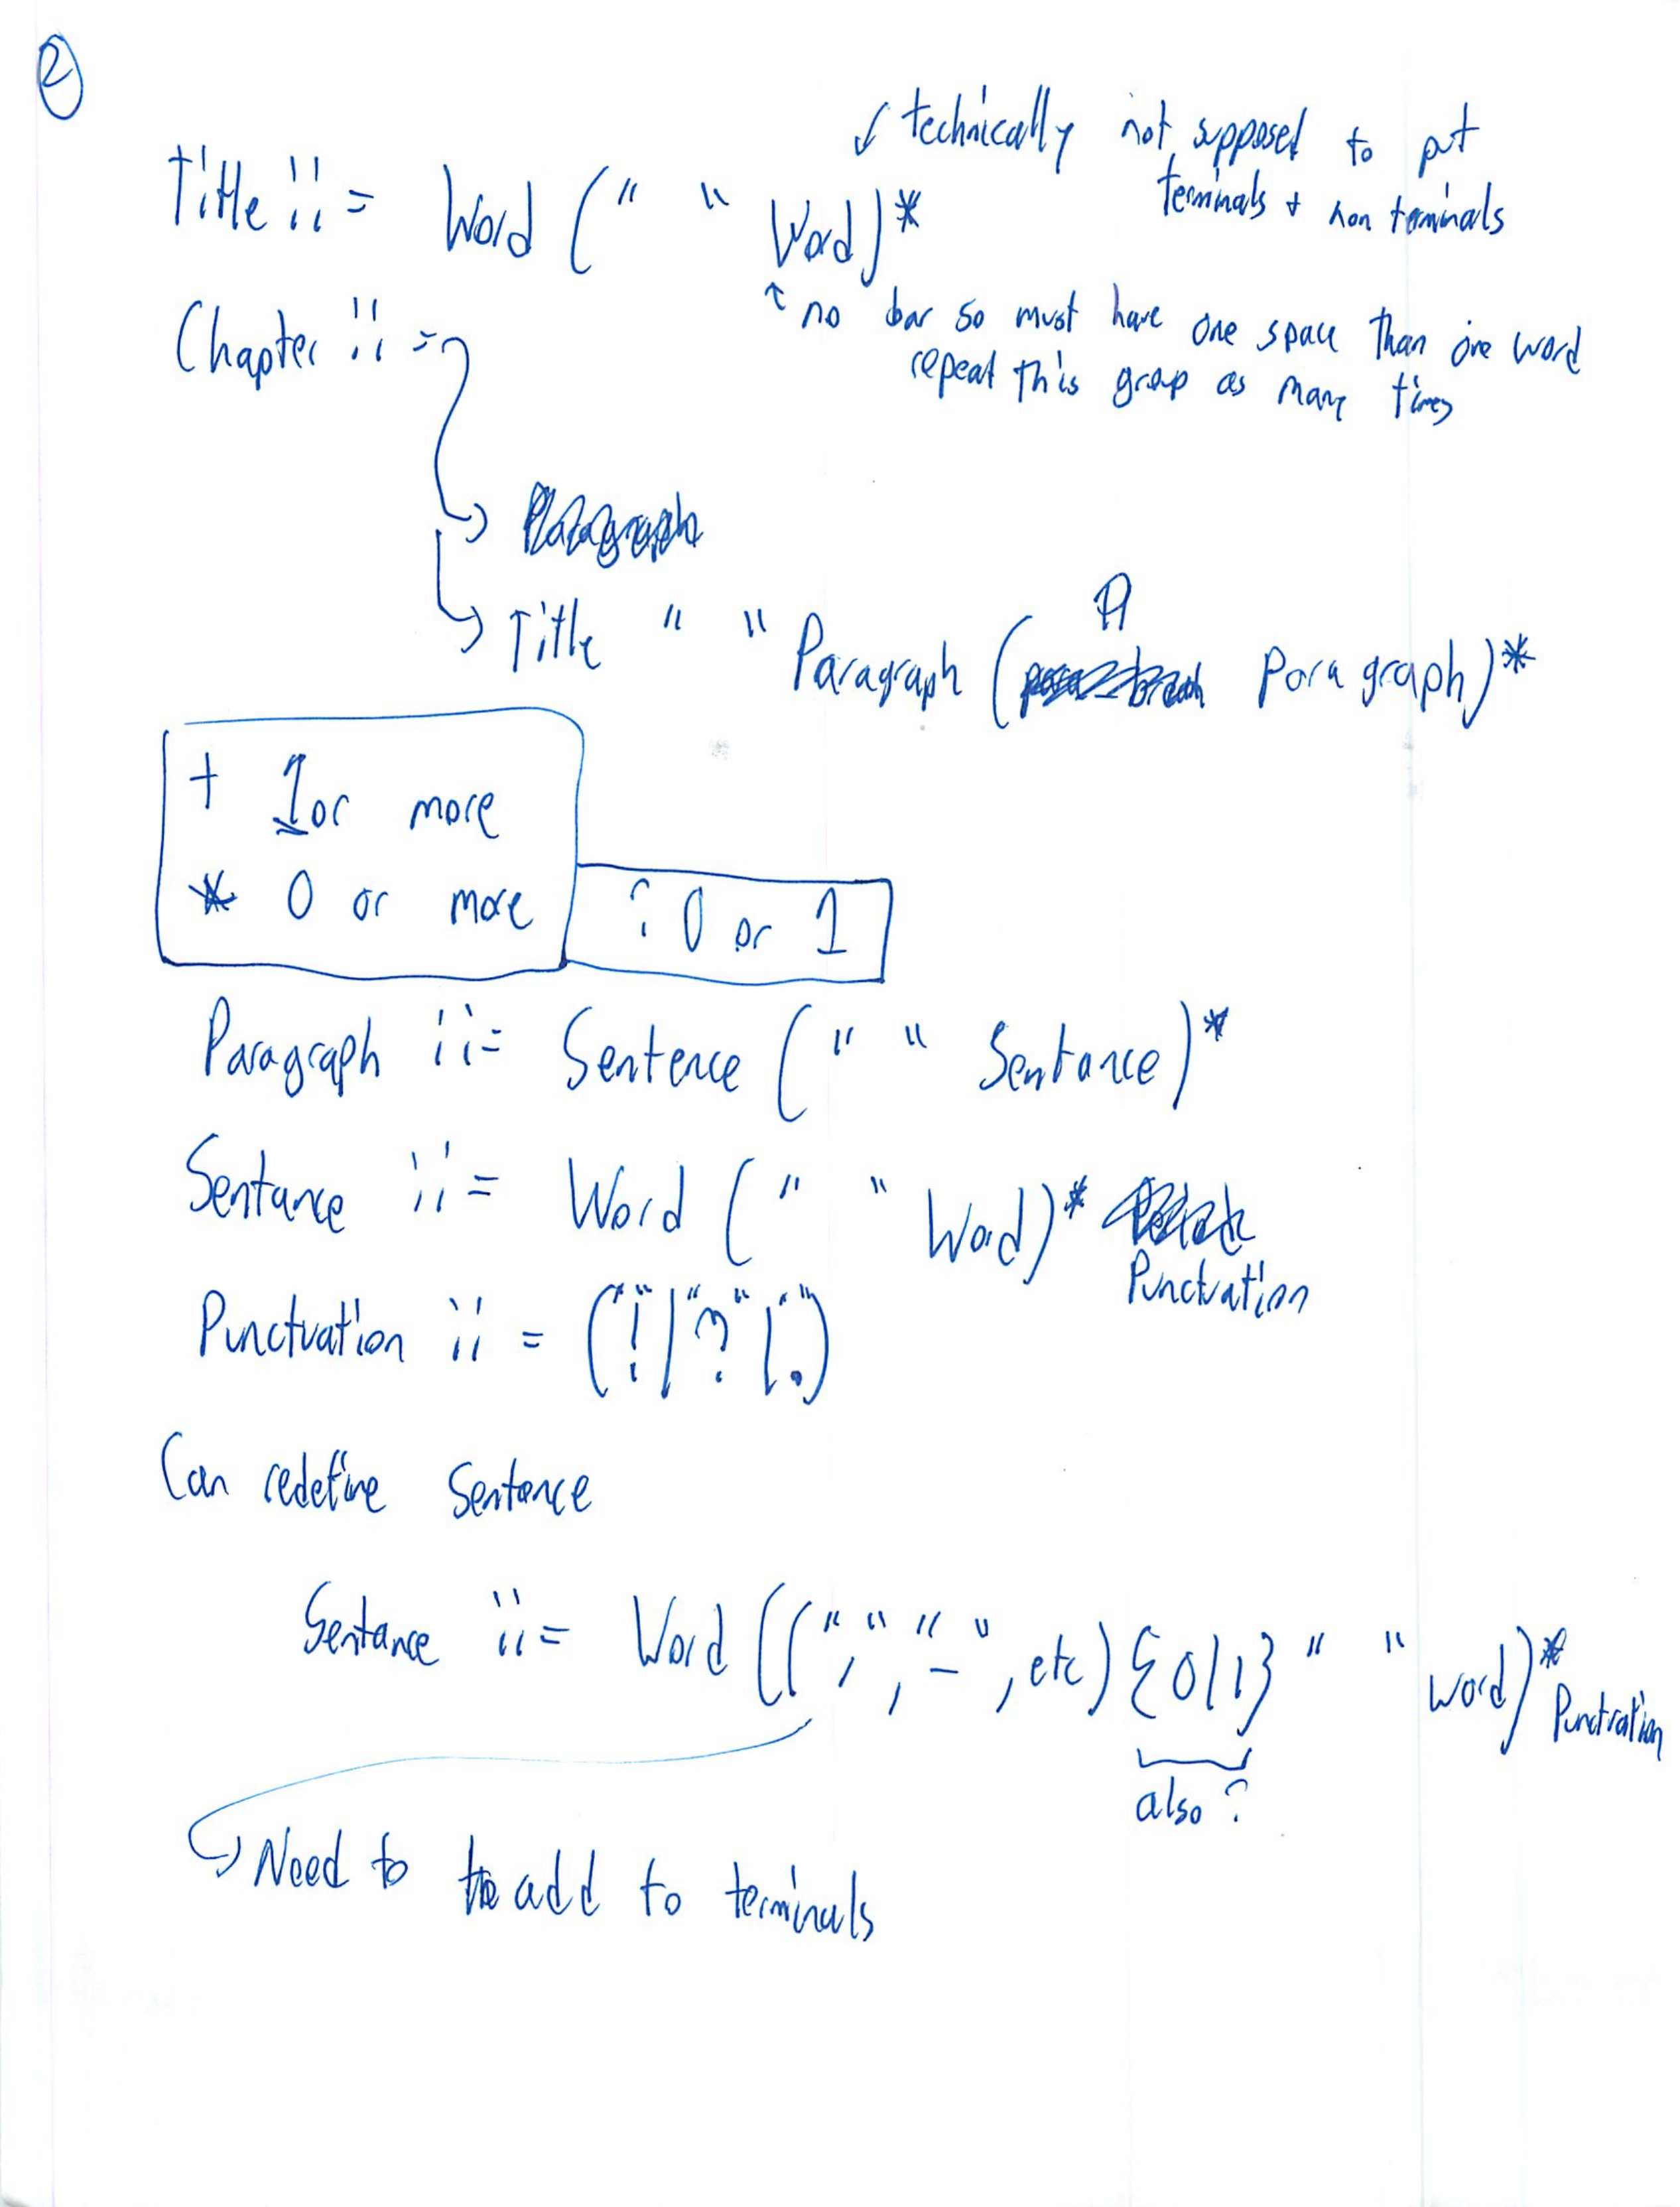 2
↙ technically not supposed to put
terminals + non terminals
Title ::= Word (" " Word)*
↑ no bar so must have one space than one word
repeat this group as many times
Chapter ::=
Paragraph
Title " " Paragraph ( Paragraph)*
+ 1 or more
* 0 or more
? 0 or 1
Paragraph ::= Sentence (" " Sentance)*
Sentance ::= Word (" " Word)*
Punctuation
Punctuation ::= ("!"|"?"|".")
Can redefine Sentence
Sentance ::= Word ((",", "-", etc){0|1} " " word)* Punctration
also ?
Need to add to terminals